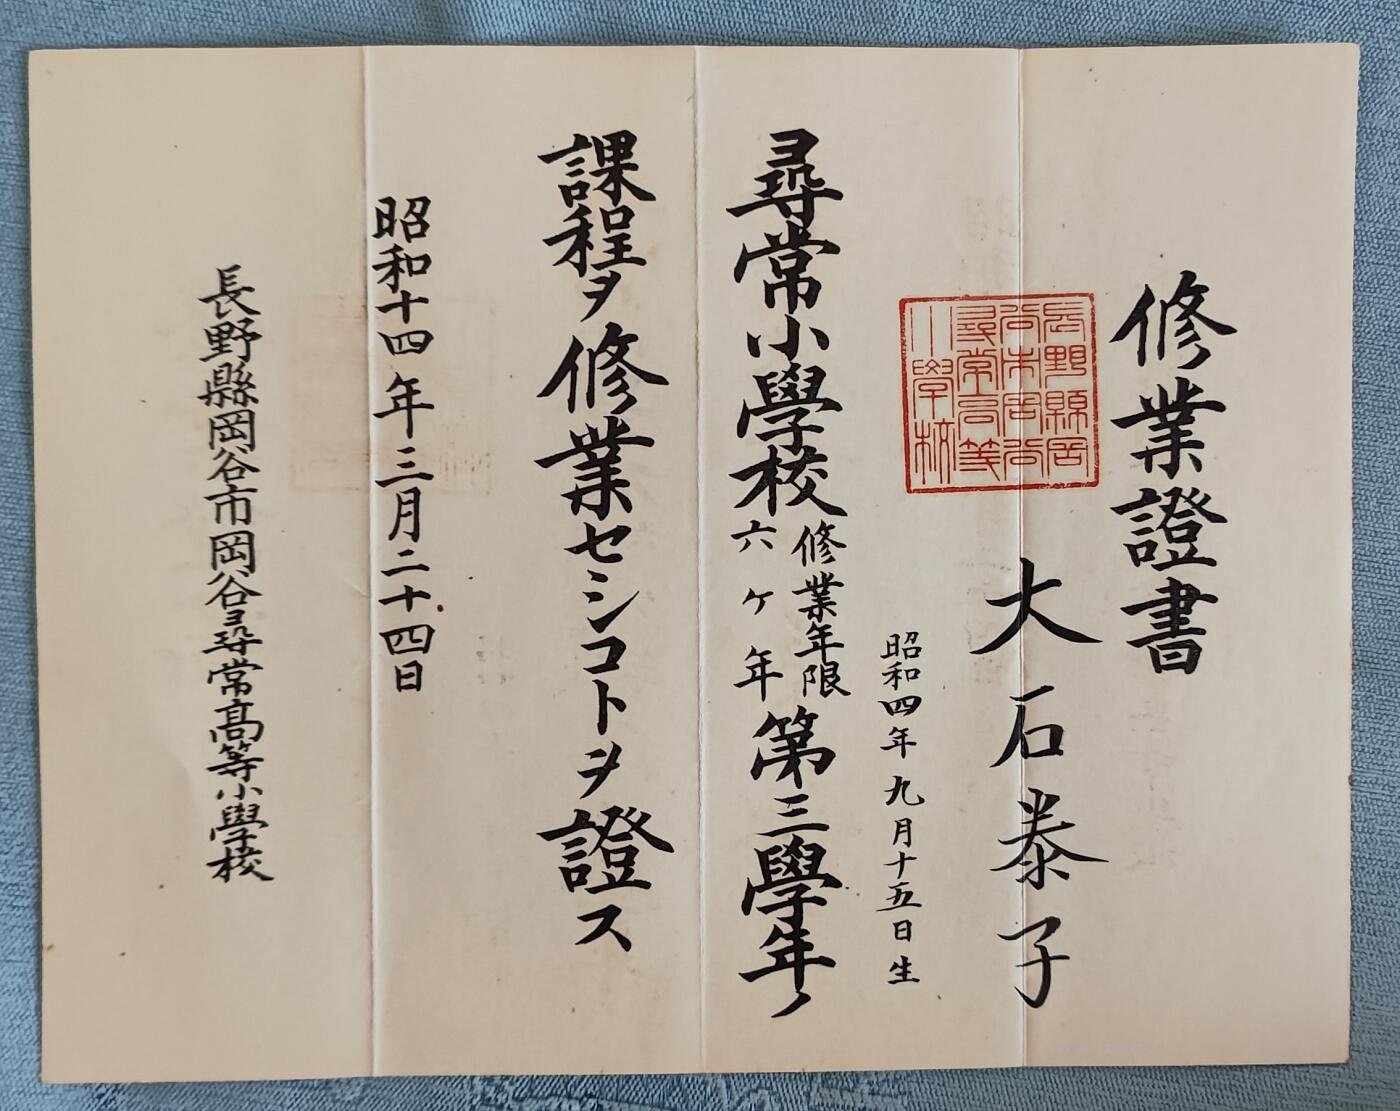 修業證書
大石泰子
昭和四年九月十五日生
尋常小學校修業年限六ヶ年第三學年ノ
課程ヲ修業セシコトヲ證ス
昭和十四年三月二十四日
長野縣岡谷市岡谷尋常高等小學校
長野縣岡
谷市岡谷
尋常高等
小學校